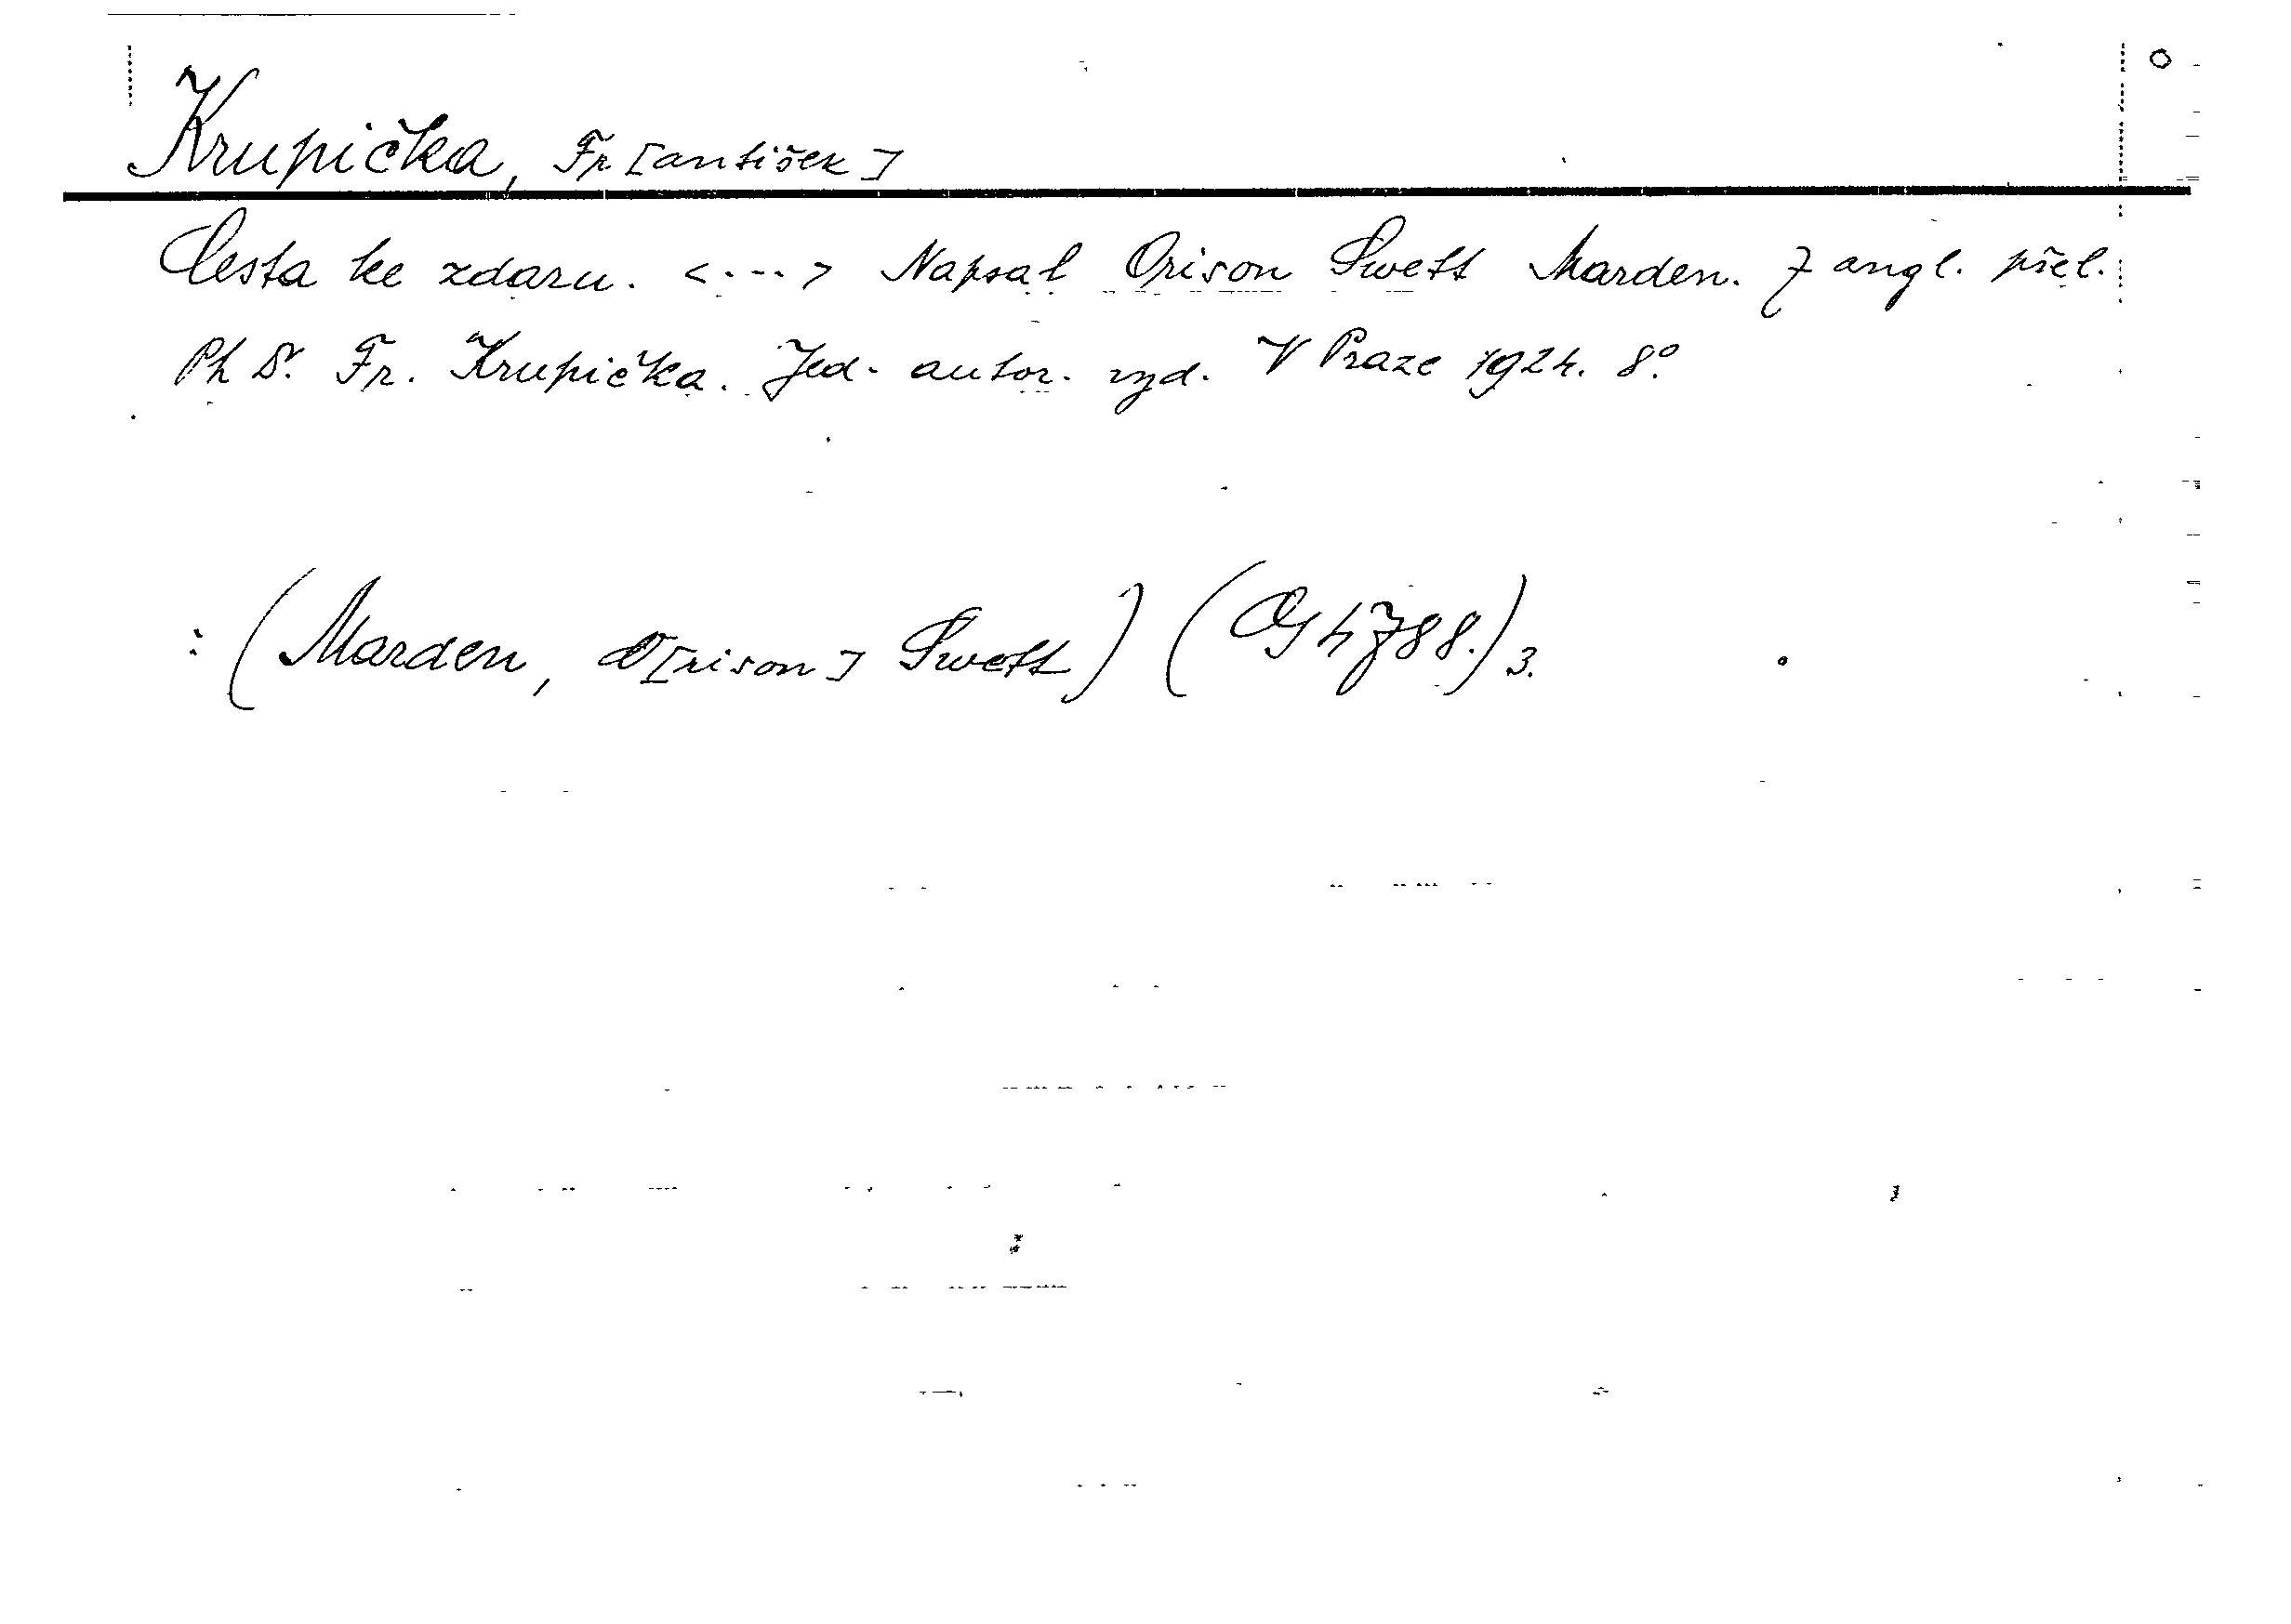 Krupička, Fr[antišek]
Cesta ke zdaru. <.---> Napsal Orison Swett Marden. Z angl. přel.
PhDr. Fr. Krupička. Jed. autor. vyd. V Praze 1924. 8°.
: (Marden, O[rison] Swett) (Og 4788.) 3.